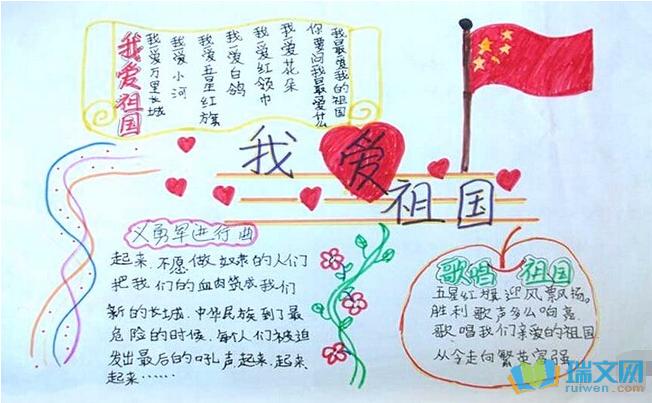 我爱祖国
我爱万里长城
我爱小河
我爱五星红旗
我爱白鸽
我爱红领巾
我爱花朵
你要问我最爱什么
我最爱我的祖国
我爱祖国
义勇早进行曲
起来、不愿做奴隶的人们
把我们的血肉筑成我们
新的长城、中华民族到了最
危险的时候、每个人们被迫
发出最后的吼声起来、起来、
起来……
歌唱 祖国
五星红旗迎风飘扬。
胜利歌声多么响亮
歌唱我们亲爱的祖国
从令走向繁荣富强
瑞文网
ruiwen.com